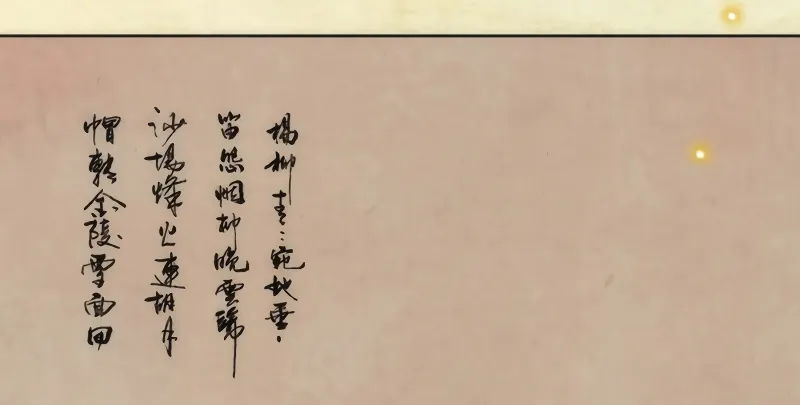 楊柳青：宛地垂
笛怨烟柳晚雲
沙場烽火連胡月
帽 金陵雪面回